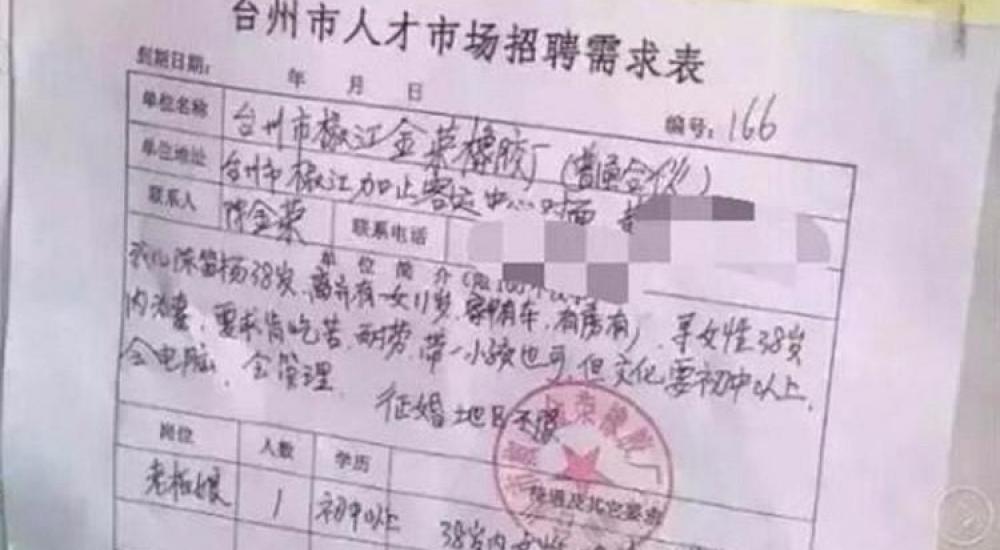 台州市人才市场招聘需求表
到期日期： 年 月 日
编号：166
单位名称 台州市椒江金荣橡胶厂（普通合伙）
单位地址 台州市椒江加止客运中心对面
联系人 陈金荣 联系电话
单位简介
我儿陈富杨38岁，离异有一女11岁，家有车，有房有厂，寻女性38岁
内洁妻，要求肯吃苦，耐劳，带一小孩也可，但文化要初中以上，
会电脑，会管理 征婚地区不限
荣橡胶厂
岗位 人数 学历 待遇及其它要求
老板娘 1 初中以上 38岁内女性